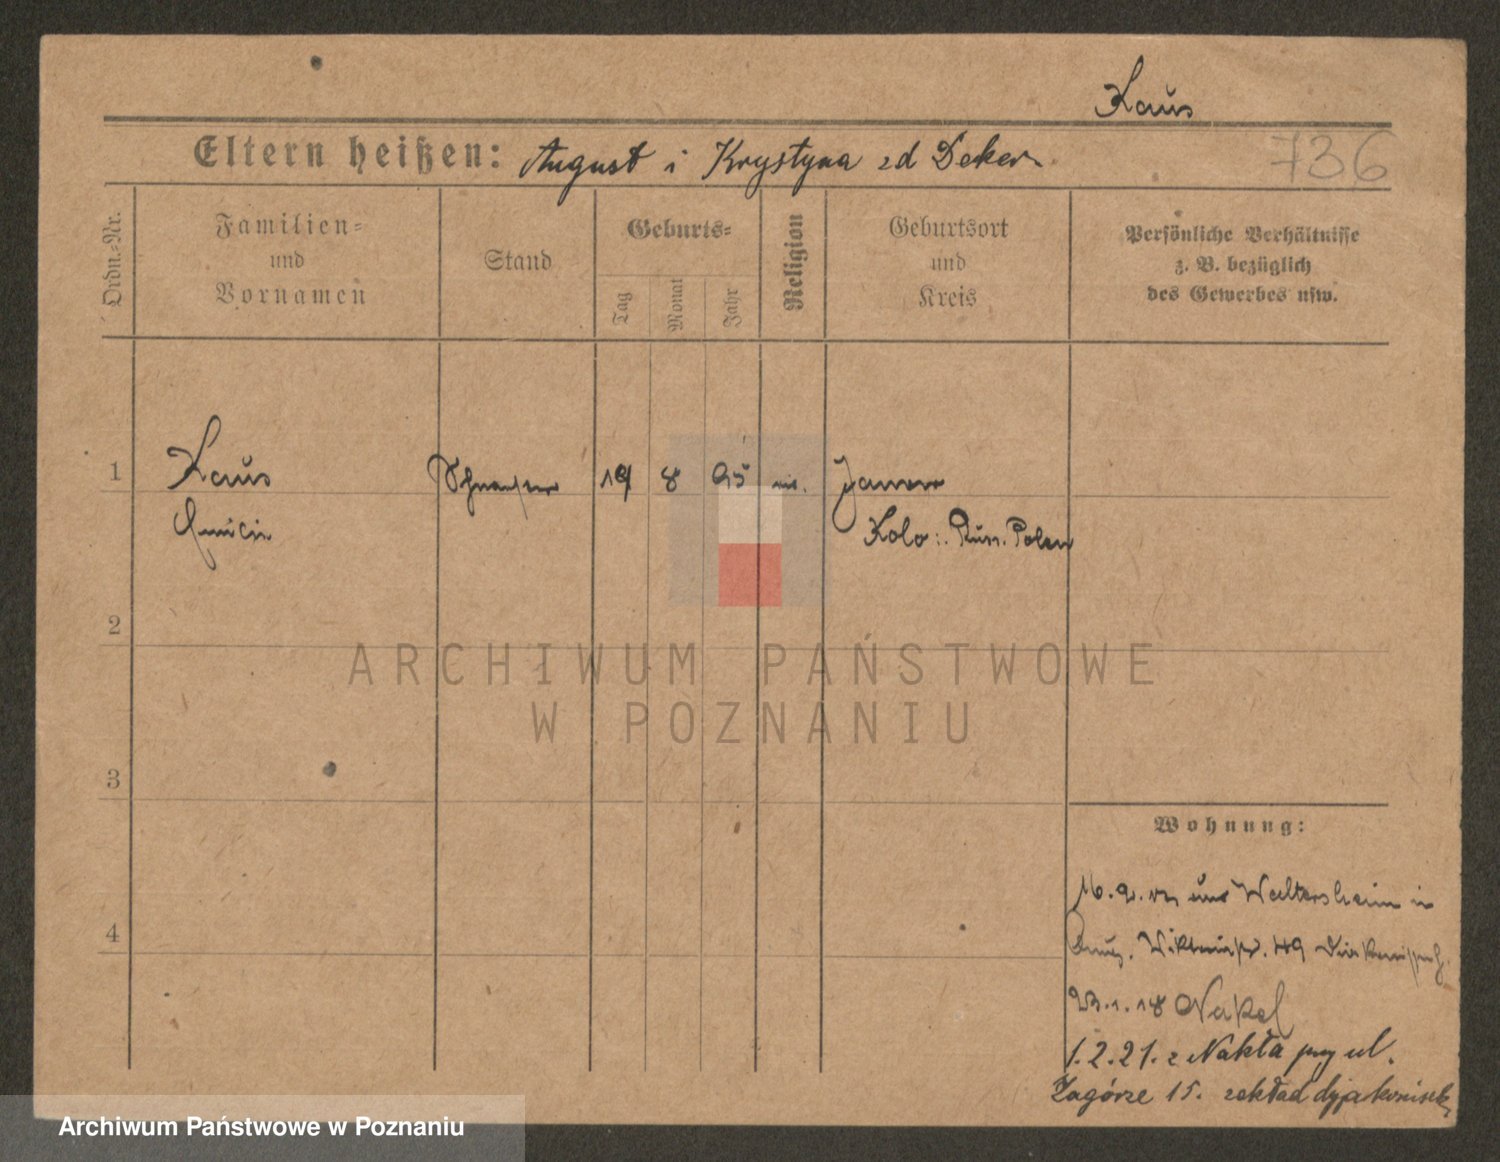 Kaus
736
Eltern heißen: August i Krystyna zd Deker
Ordn.-Nr.
Familien-
und
Vornamen
Stand
Geburts-
Tag
Monat
Jahr
Religion
Geburtsort
und
Kreis
Persönliche Verhältnisse
z. B. bezüglich
des Gewerbes usw.
1 Kaus 19 8 95 Janow
Kolo Russ. Polen
2
ARCHIWUM PAŃSTWOWE
W POZNANIU
3
Wohnung:
4
16. 9. aus Waltersheim in
49
23. 1. 18 Nakel
1. 2. 21. z Nakła przy ul.
Zagórze 15. zakład dyjakonisek
Archiwum Państwowe w Poznaniu